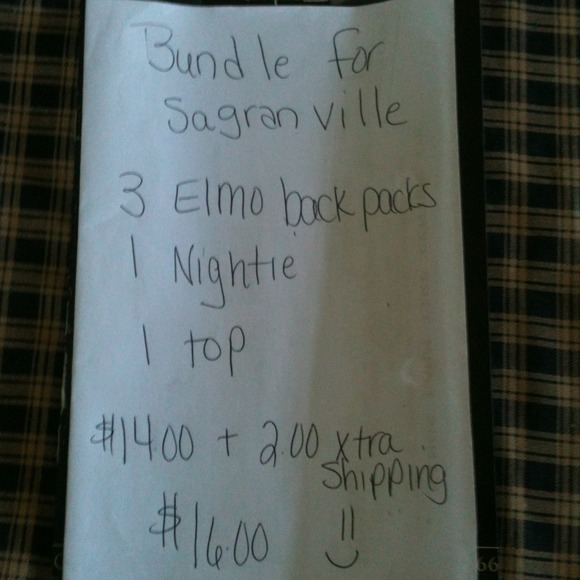 Bundle for
Sagranville
3 Elmo back packs
1 Nightie
1 top
$14.00 + 2.00 xtra
Shipping
$16.00
66